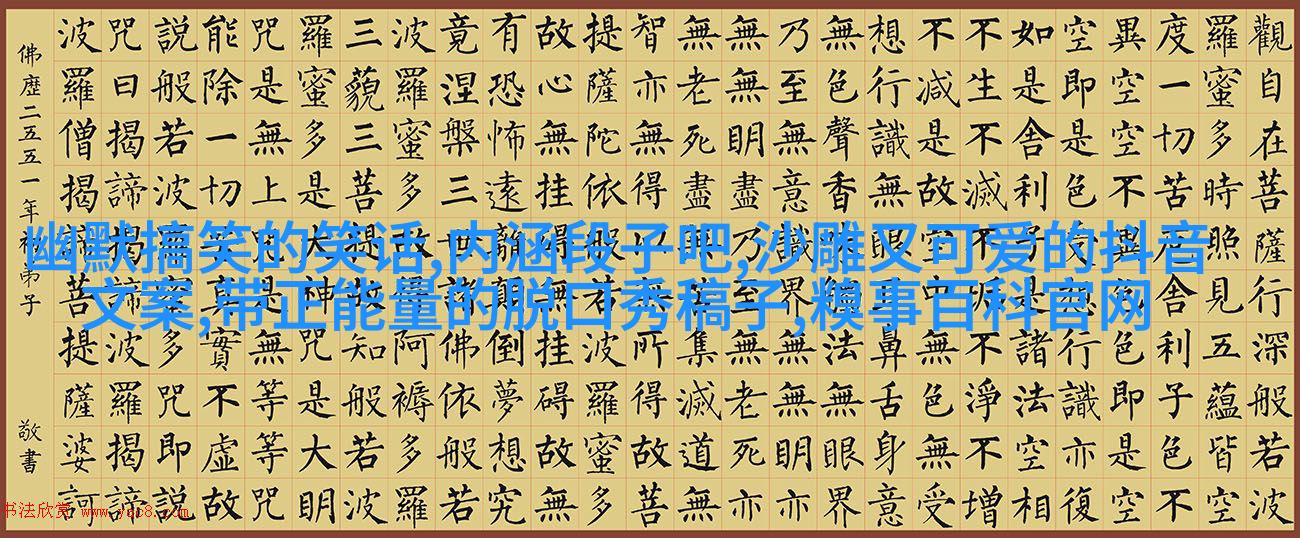 觀自在菩薩行深般若波
羅蜜多時照見五蘊皆空
度一切苦厄舍利子色不
異空空不異色色即是空
空即是色受想行識亦復
如是舍利子是諸法空相
不生不滅不垢不淨不增
不減是故空中無色無受
想行識無眼耳鼻舌身意
無色聲香味觸法無眼界
乃至無意識界無無明亦
無無明盡乃至無老死亦
無老死盡無苦集滅道無
智亦無得以無所得故菩
提薩陀依般若波羅蜜多
故心無挂礙無挂礙故無
有恐怖遠離顛倒夢想究
竟涅槃三世諸佛依般若
波羅蜜多故得阿褥多羅
三藐三菩提故知般若波
羅蜜多是大神咒是大明
咒是無上咒是無等等咒
能除一切苦真實不虛故
說般若波羅蜜多咒即說
咒曰揭諦揭諦波羅揭諦
波羅僧揭諦菩提薩婆訶
佛歷二五五一年 弟子 敬書
幽默搞笑的笑话,内涵段子吧,沙雕又可爱的抖音
文案,带正能量的脱口秀稿子,糗事百科官网
书法欣赏 www.yac8.com